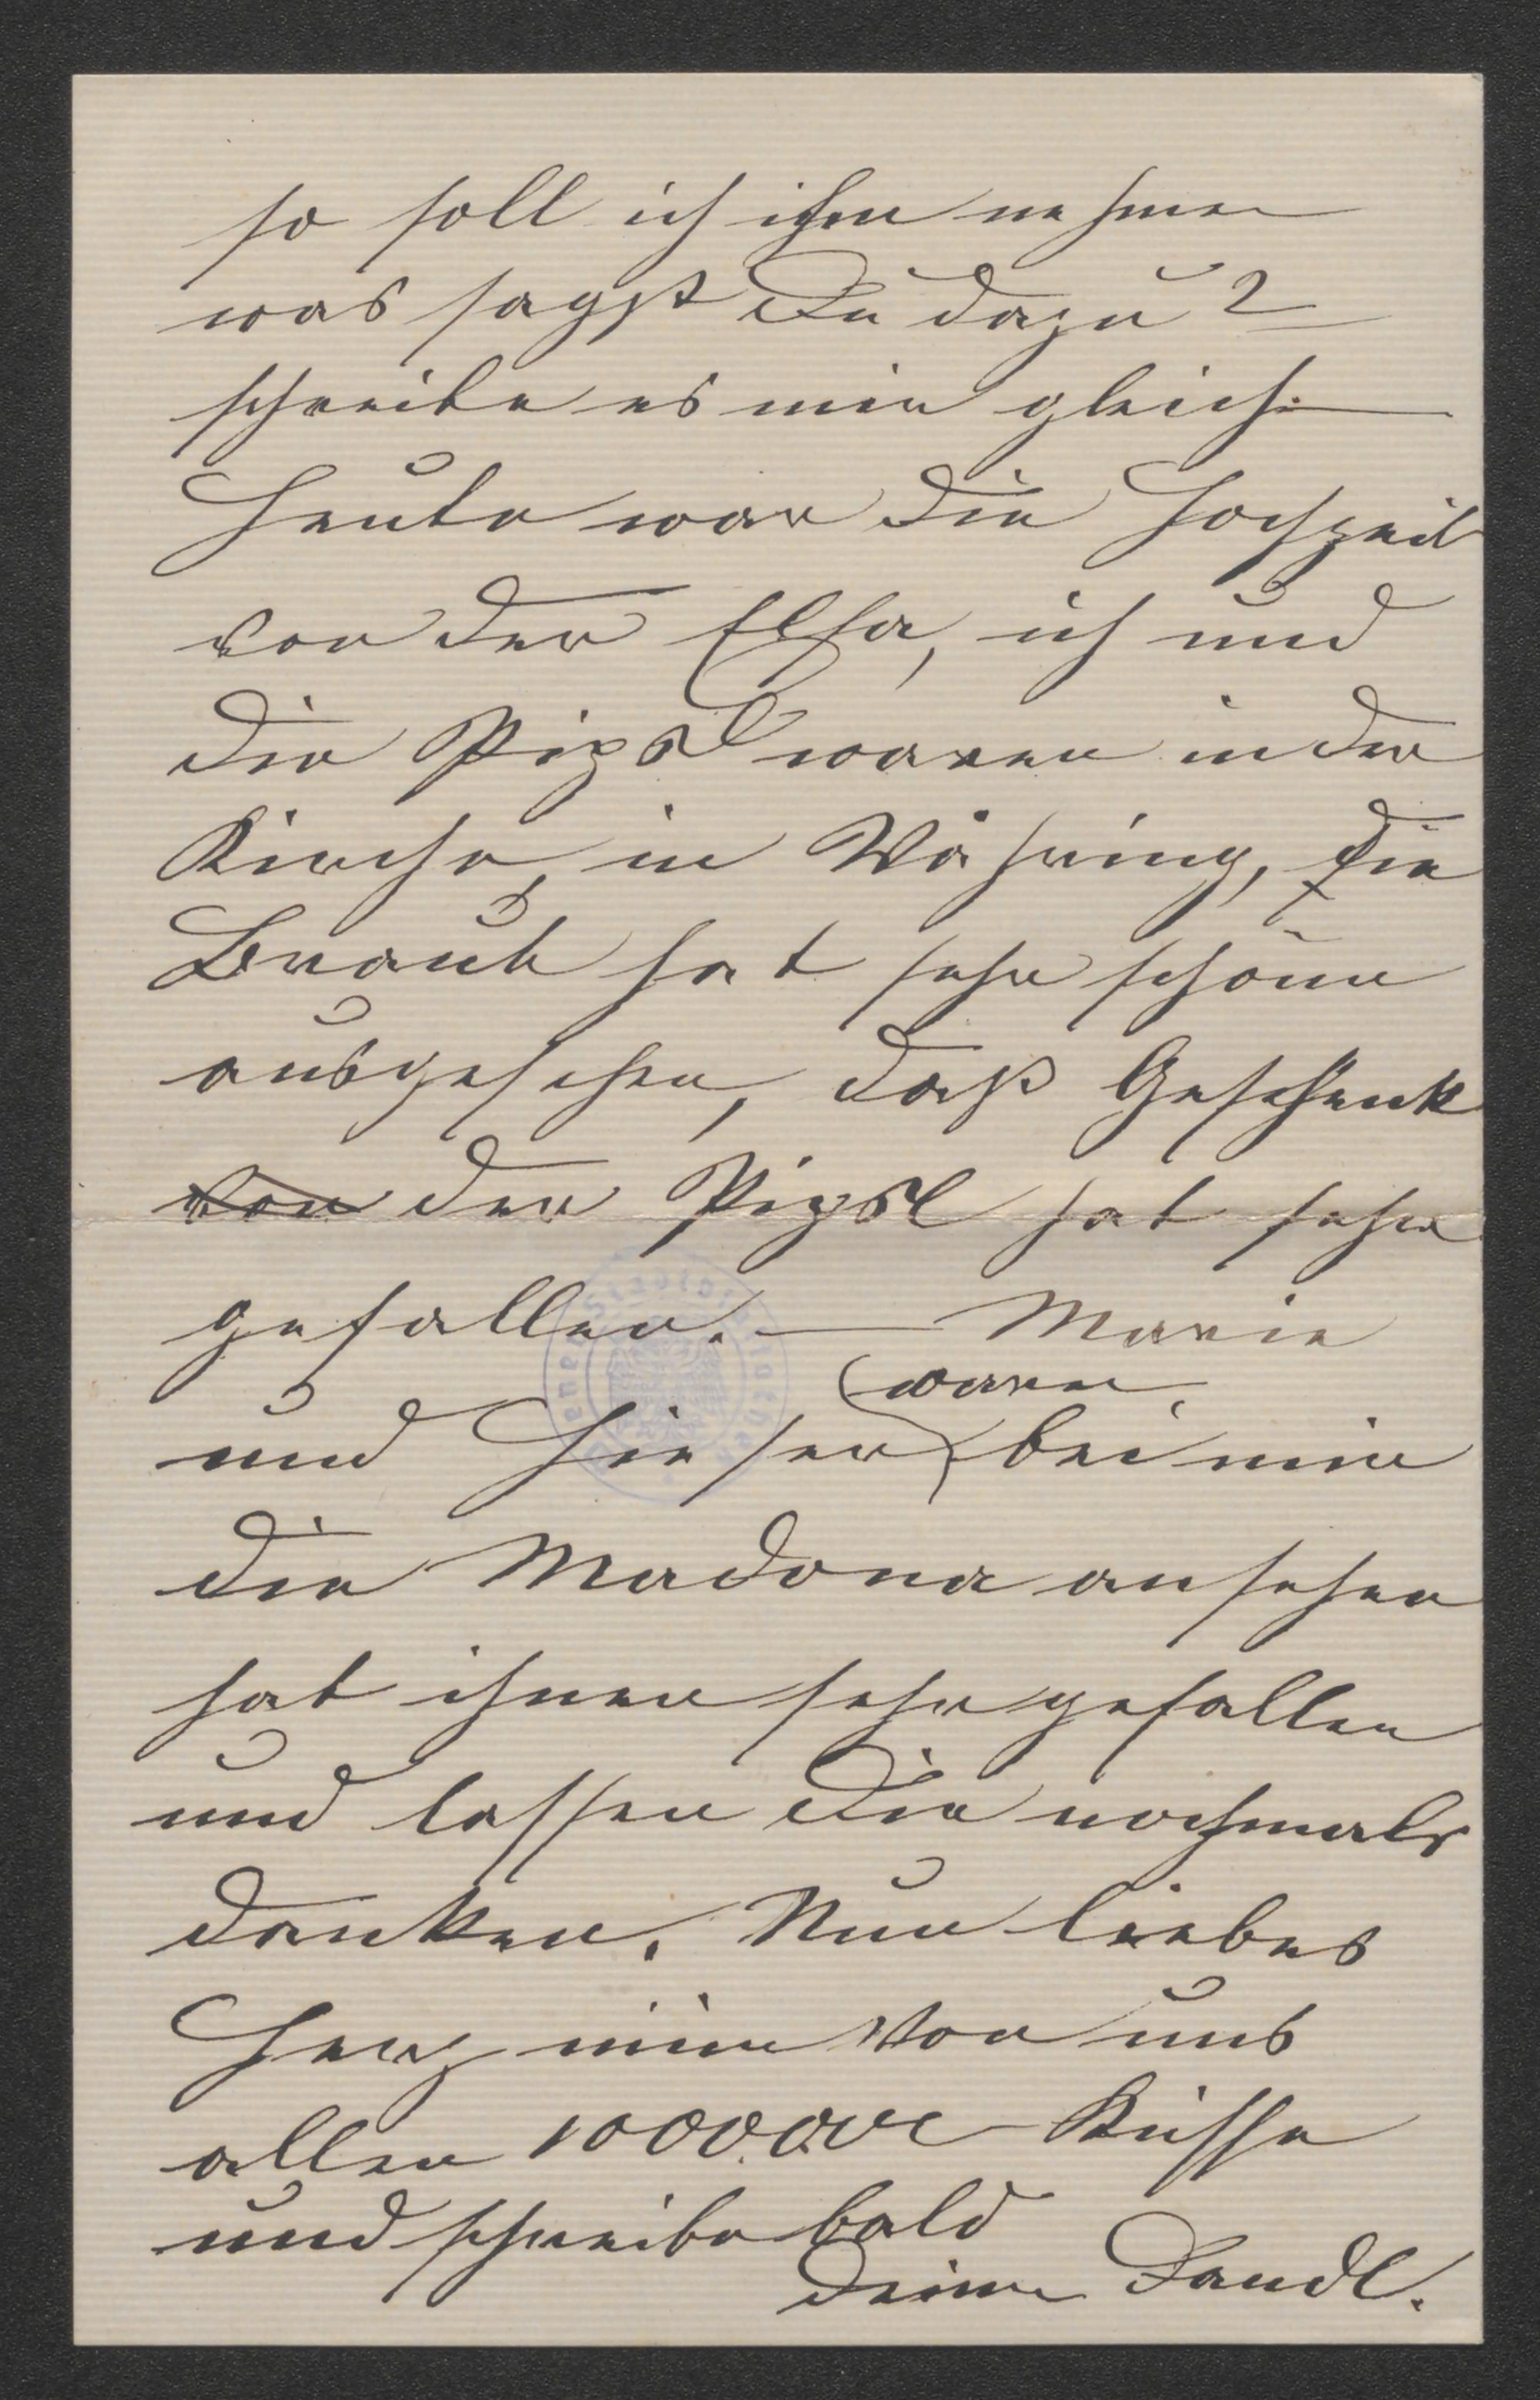 so soll ich ihn nehmen
was sagst Du dazu?
schreibe es mir gleich.
Heute war die Hochzeit
von der Elsa, ich und
die Pizsl waren in der
Kirche, in Währing, die
Braut hat sehr schön
ausgesehen, daß Geschenk
von der Pizsl hat sehr
gefallen. — Marie
waren
und Hieser bei mir
die Madona ansehen
hat ihnen sehr gefallen
und lassen Dir nochmals
danken. Nun liebes
Herz mein von uns
allen Küsse
und schreibe bald
Deine Landl.